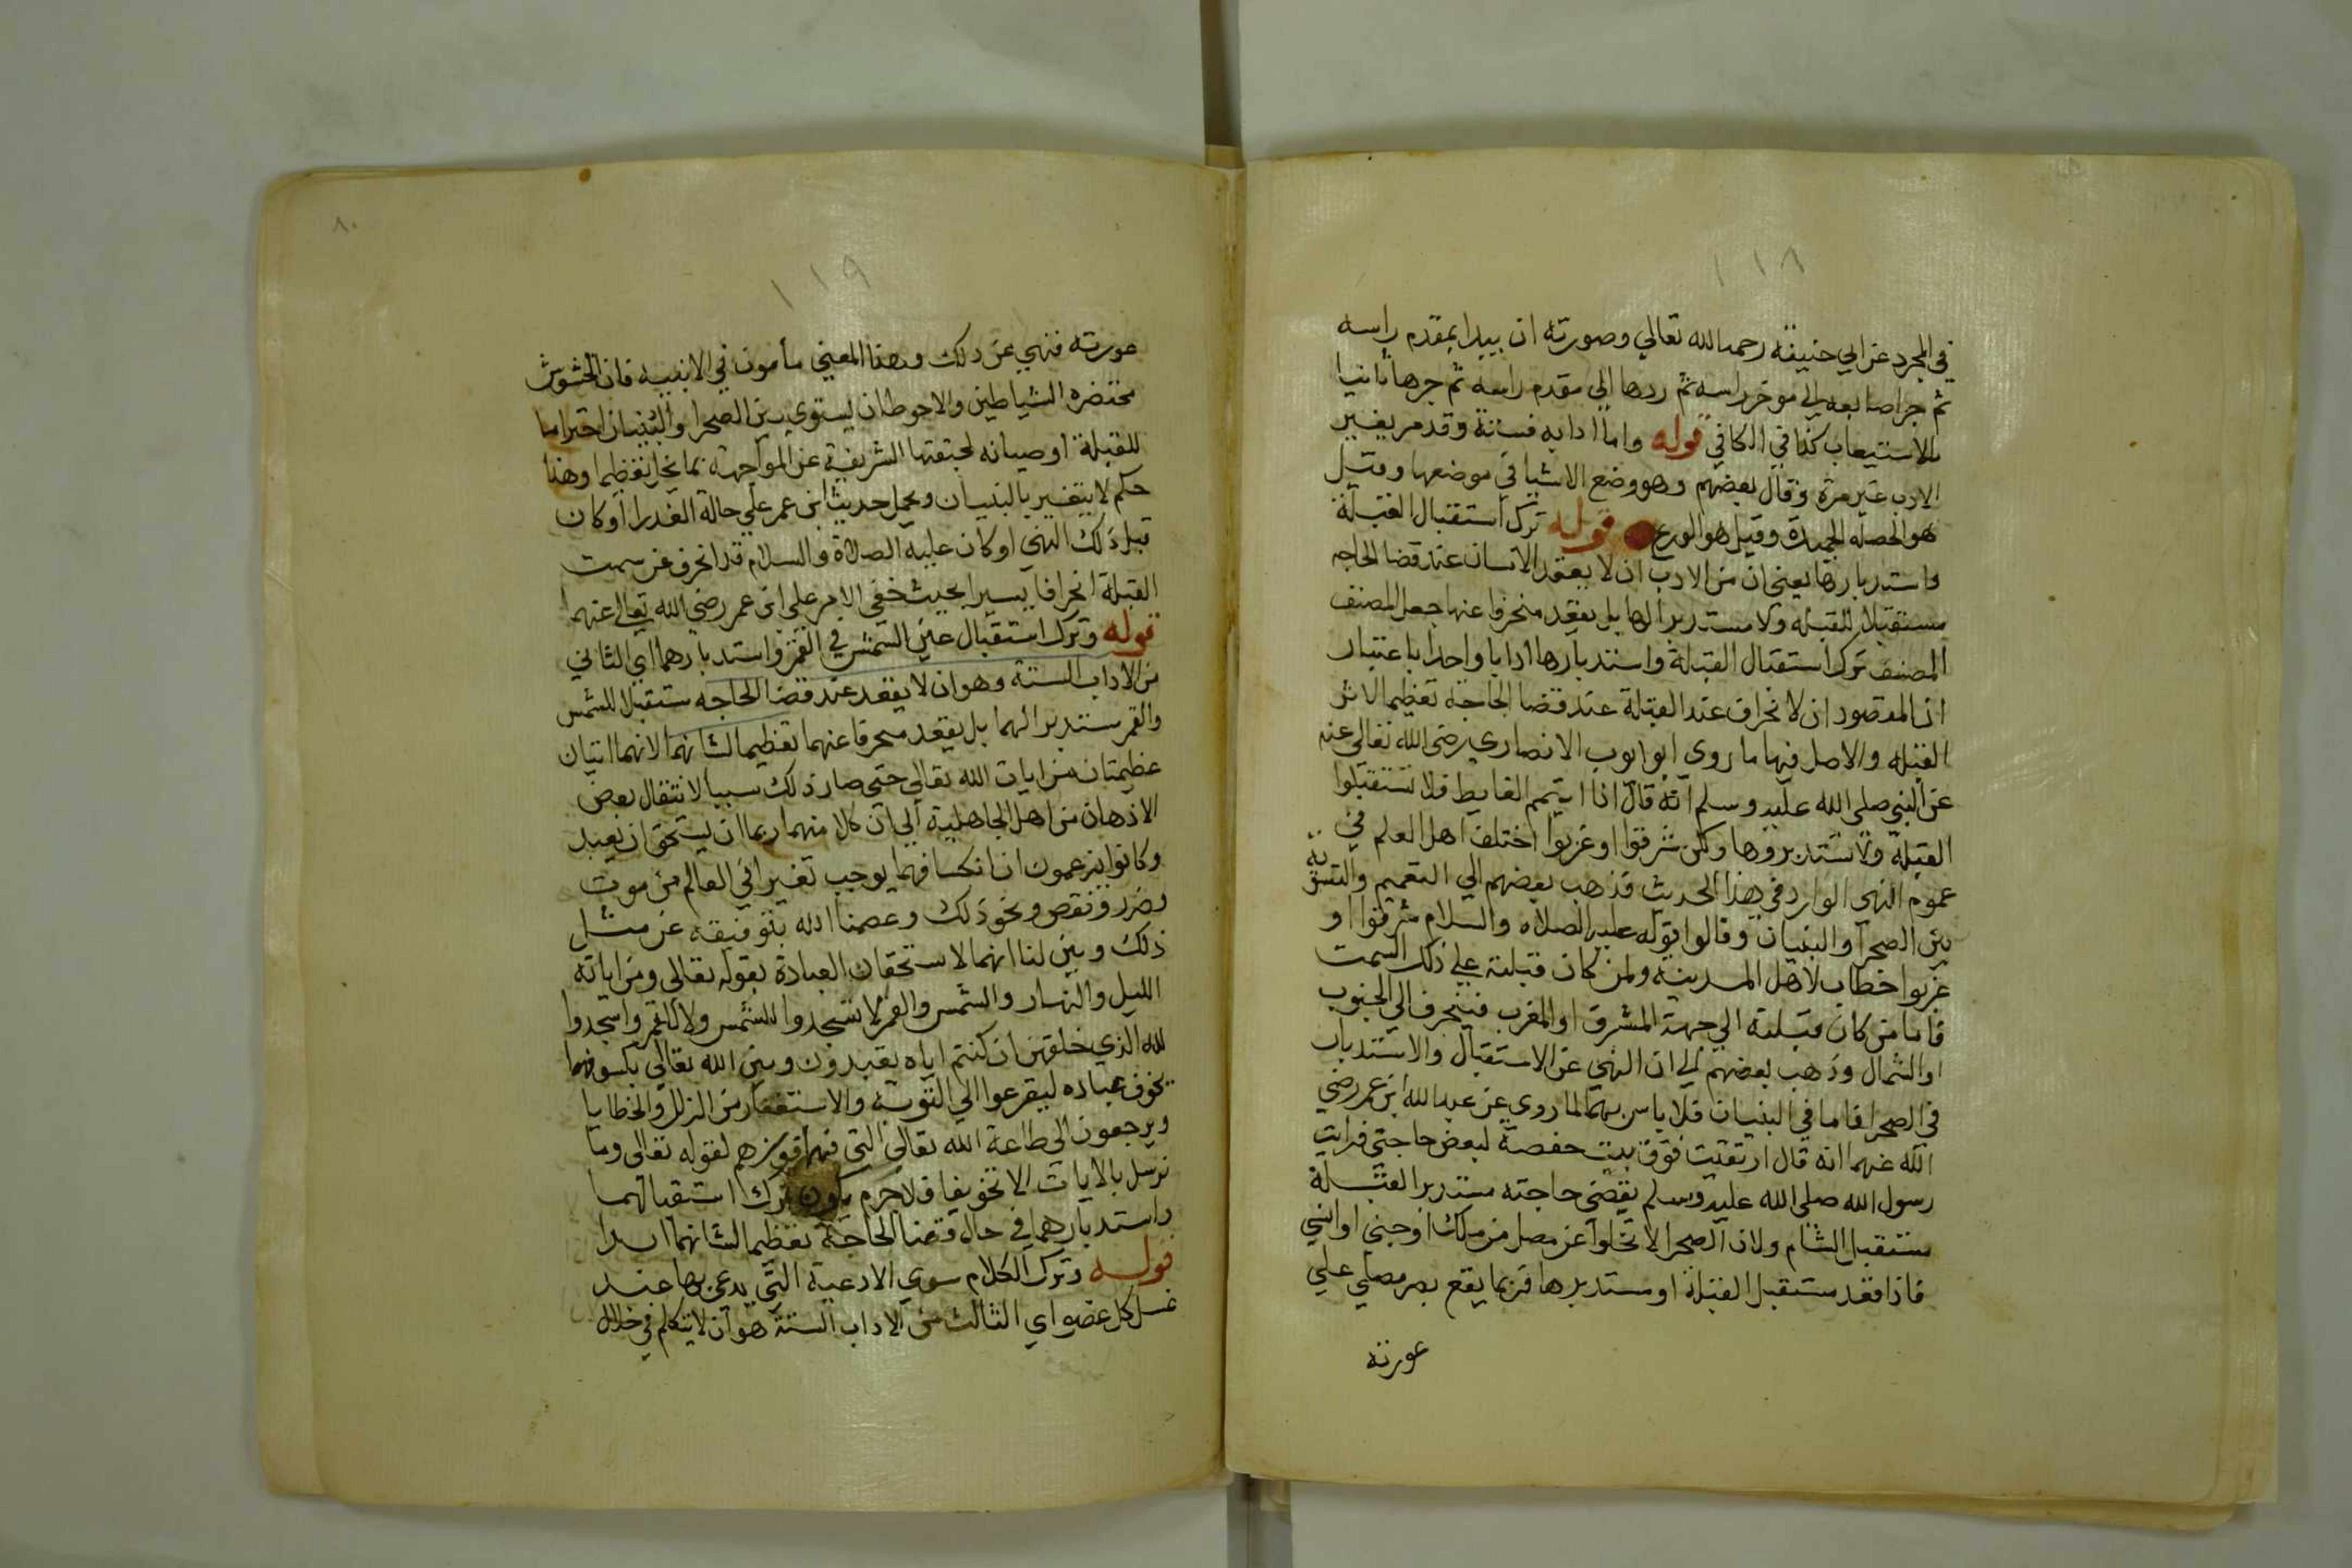 ١١٨
في المجرد عن ابي حنيفة رحمه الله تعالي وصورته ان يبدا بمقدم راسه
ثم جر اصابعه الي موخر راسه ثم ردها الي مقدم راسه ثم جرها ثانيا
للاستيعاب كذا في الكافي قوله واما ادابه فستة وقد مر تفسير
الادب غير مرة وقال بعضهم وهو وضع الاشيا في موضعها وقيل
هو الخصلة الحميدة وقيل هو الورع قوله ترك استقبال القبلة
واستدبارها يعني ان من الادب ان لا يقعد الانسان عند قضا الحاجه
مستقبلا للقبله ولا مستدبرا لها بل يقعد منحرفا عنها جعل المصنف
المصنف ترك استقبال القبلة واستدبارها ادابا واحدا باعتبار
ان المقصود ان لانحراف عند القبلة عند قضا الحاجة تعظيما لاثر
القبله والاصل فيها ما روى ابو ايوب الانصاري رضى الله تعالي عنه
عن النبي صلى الله عليه وسلم انه قال اذا اتيتم الغايط فلا تستقبلوا
القبلة ولا تستدبروها ولكن شرقوا او غربوا اختلف اهل العلم في
عموم النهى الوارد في هذا الحديث فذهب بعضهم الي التعميم والتسوية
بين الصحرا والبنيان وقالوا قوله عليه الصلاه والسلام شرقوا او
غربوا خطاب لاهل المدينه ولمن كان قبلته علي ذلك السمت
فاما من كان قبلته الي جهة المشرق او المغرب فينحرف الي الجنوب
او الشمال وذهب بعضهم الي ان النهي عن الاستقبال والاستدبار
في الصحرا فاما في البنيان فلا باس بهما لما روي عن عبد الله ابن عمر رضي
الله عنهما انه قال ارتقيت فوق بيت حفصة لبعض حاجتي فرايت
رسول الله صلى الله عليه وسلم يقضى حاجته مستدبر القبلة
مستقبل الشام ولان الصحرا لا تخلوا عن مصل من ملك او جني او انسي
فاذا قعد مستقبل القبلة او مستدبرها فربما يقع بصر مصلي علي
عورته
٨٠
١١٩
عورته فنهي عن ذلك وهذا المعني مأمون في الابنيه فان الحشوش
محتضره الشياطين والاحوط ان يستوي بين الصحرا والبنيان احتراما
للقبلة او صيانه لجهتها الشريفة عن المواجهة بما يخل تعظيما وهذا
حكم لا يتغير بالبنيان ويحمل حديث ابن عمر علي حالة العذر او كان
قبل ذلك النهي او كان عليه الصلاة والسلام قد انحرف عن سمت
القبلة انحرافا يسيرا بحيث خفي الامر علي ابن عمر رضي الله تعالى عنهما
قوله وترك استقبال عين الشمس في القمر واستدبارهما اي الثاني
من الاداب الستة وهو ان لا يقعد عند قضا الحاجه مستقبلا للشمس
والقمر مستدبرا لهما بل يقعد منحرفا عنهما تعظيما لشانهما لانهما ايتان
عظيمتان من ايات الله تعالي حتى صار ذلك سببا لانتقال بعض
الاذهان من اهل الجاهلية الي ان كلا منهما ربما ان يستحق ان يعبد
وكانوا يزعمون ان انكسافهما يوجب تغيرا في العالم من موت
وضرر ونقص ونحو ذلك وعصمنا الله بتوفيقه عن مثل
ذلك وبين لنا انهما لا ستحقان العبادة بقوله تعالى ومن اياته
الليل والنهار والشمس والقمر لا تسجدوا للشمس ولا للقمر واسجدوا
لله الذي خلقهن ان كنتم اياه تعبدون وبين الله تعالي بكسوفهما
يخوف عباده ليفزعوا الي التوبة والاستغفار من الزلل والخطايا
ويرجعون الى طاعة الله تعالى التي فيها فوزهم لقوله تعالى وما
نرسل بالايات الا تخويفا فلا جرم يكون ترك استقبالهما
واستدبارهما في حال قضا الحاجة تعظيما لشانهما ابدا
قوله وترك الكلام سوي الادعية التي يدعى بها عند
غسل كل عضو اي الثالث من الاداب الستة هو ان لا يتكلم في خلال